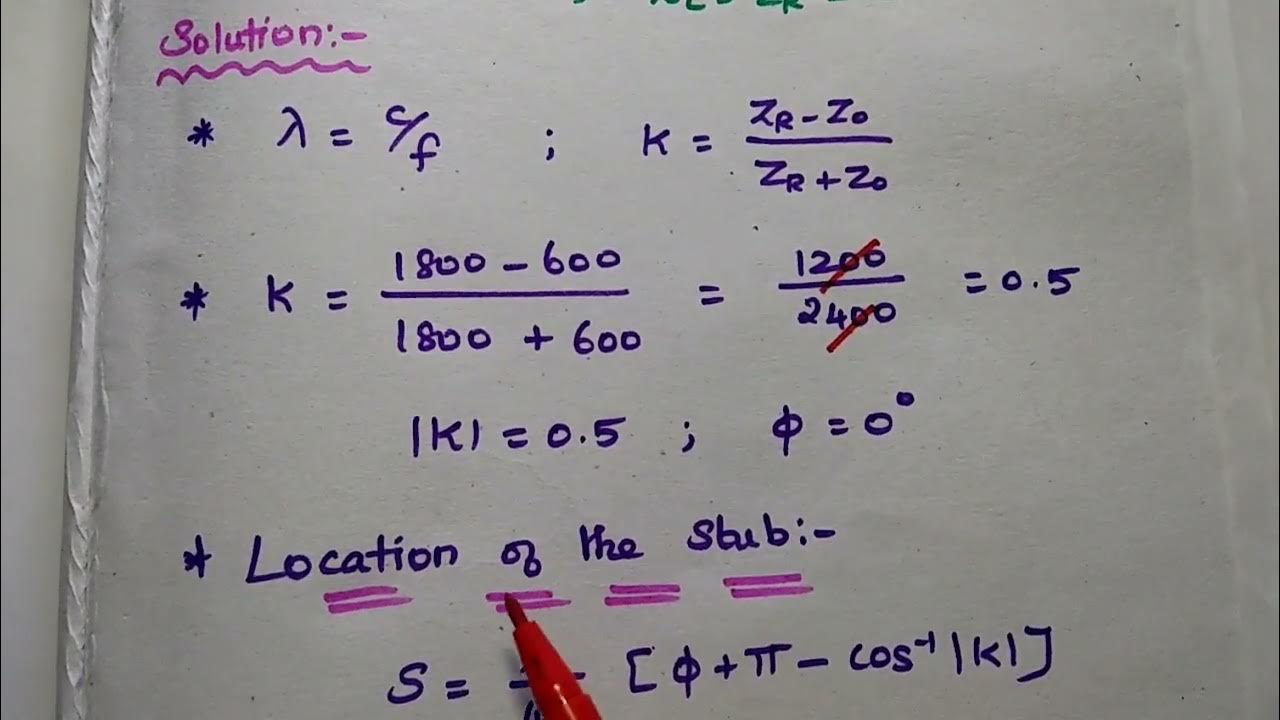 Solution:-
* λ = c/f ; K = (ZR - Z0) / (ZR + Z0)
* K = (1800 - 600) / (1800 + 600) = 1200 / 2400 = 0.5
|K| = 0.5 ; φ = 0°
* Location of the Stub:-
S = [φ + π - cos⁻¹ |K|]